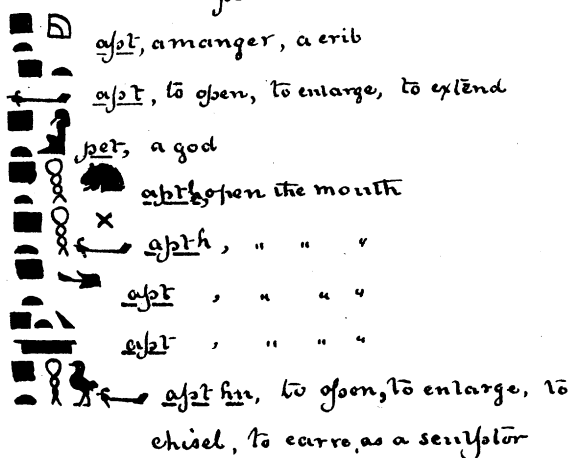 apt, a manger, a crib
apt, to open, to enlarge, to extend
pet, a god
apth, open the mouth
apth, " " "
apt, " " "
apt, " " "
apt hn, to open, to enlarge, to
chisel, to carve, as a sculptor